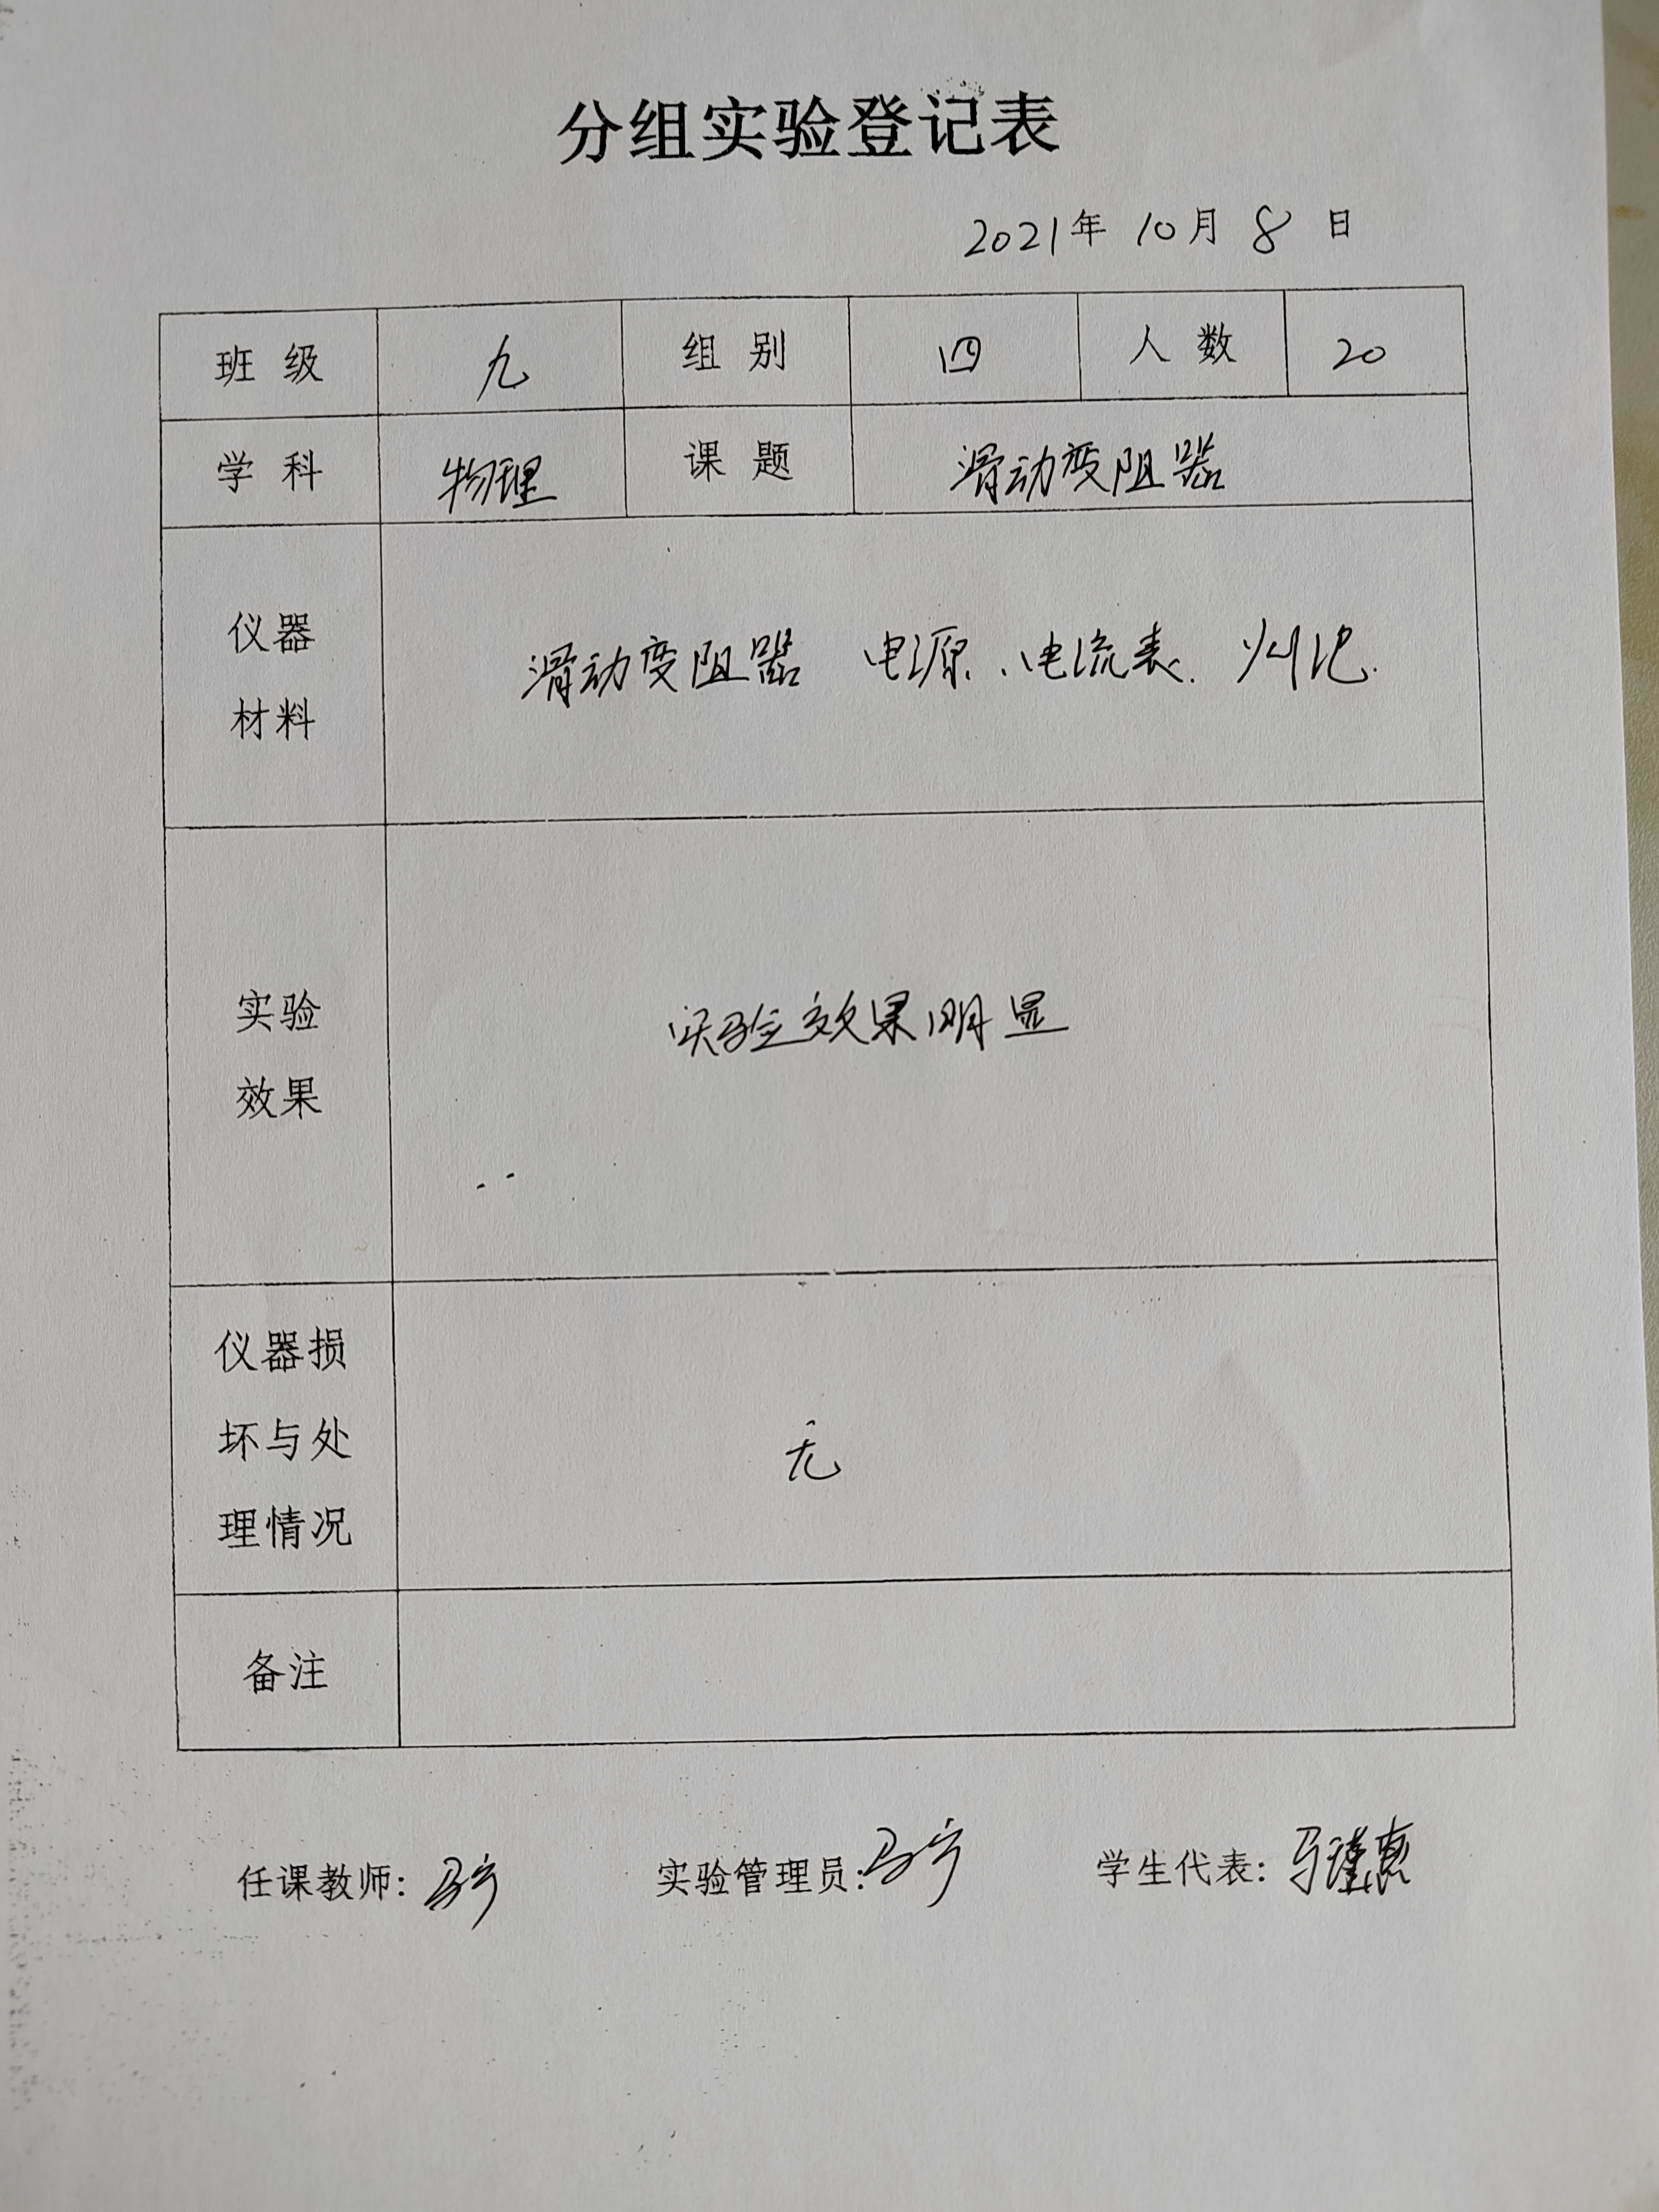 分组实验登记表
2021年 10月 8 日
班 级 九 组 别 四 人 数 20
学 科 物理 课 题 滑动变阻器
仪器
材料
滑动变阻器 电源、电流表.
实验
效果
实验效果明显
仪器损
坏与处
理情况
无
备注
任课教师: 马宁 实验管理员: 马宁 学生代表: 马瑾惠